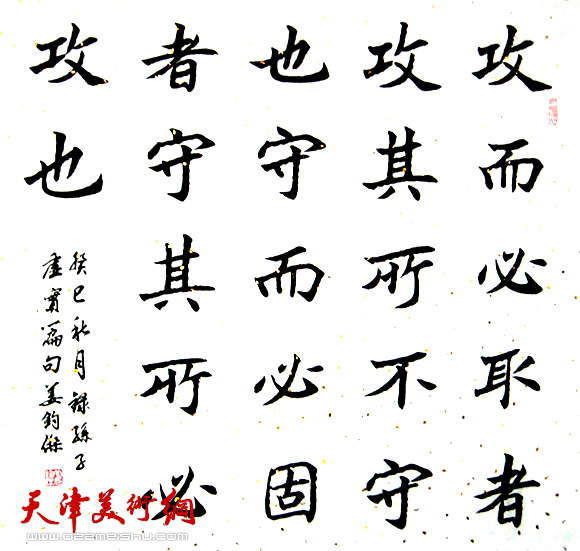 攻而必取者
攻其所不守
也守而必固
者守其所必
攻也
癸巳秋月录孙子
虚实篇句姜钧杰
天津美术网
www.022meishu.com